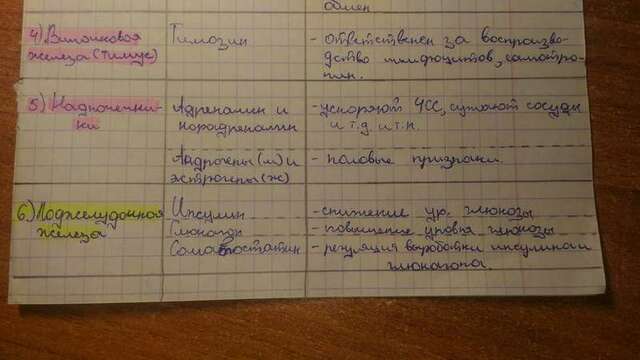 обмен
4) Вилочковая железа (тимус)
Тимозин
- ответственен за воспроизво-
дство лимфоцитов, соматотро-
пин.
5) Надпочечни-
ки
Адреналин и
норадреналин
- ускоряют ЧСС, сужают сосуды
и т.д. и т.п.
Андрогены (м) и
эстрогены (ж)
- половые признаки
6) Поджелудочная
железа
Инсулин
- снижение ур. глюкозы
Глюкагон
- повышение уровня глюкозы
Соматостатин
- регуляция выработки инсулина и
глюкагона.